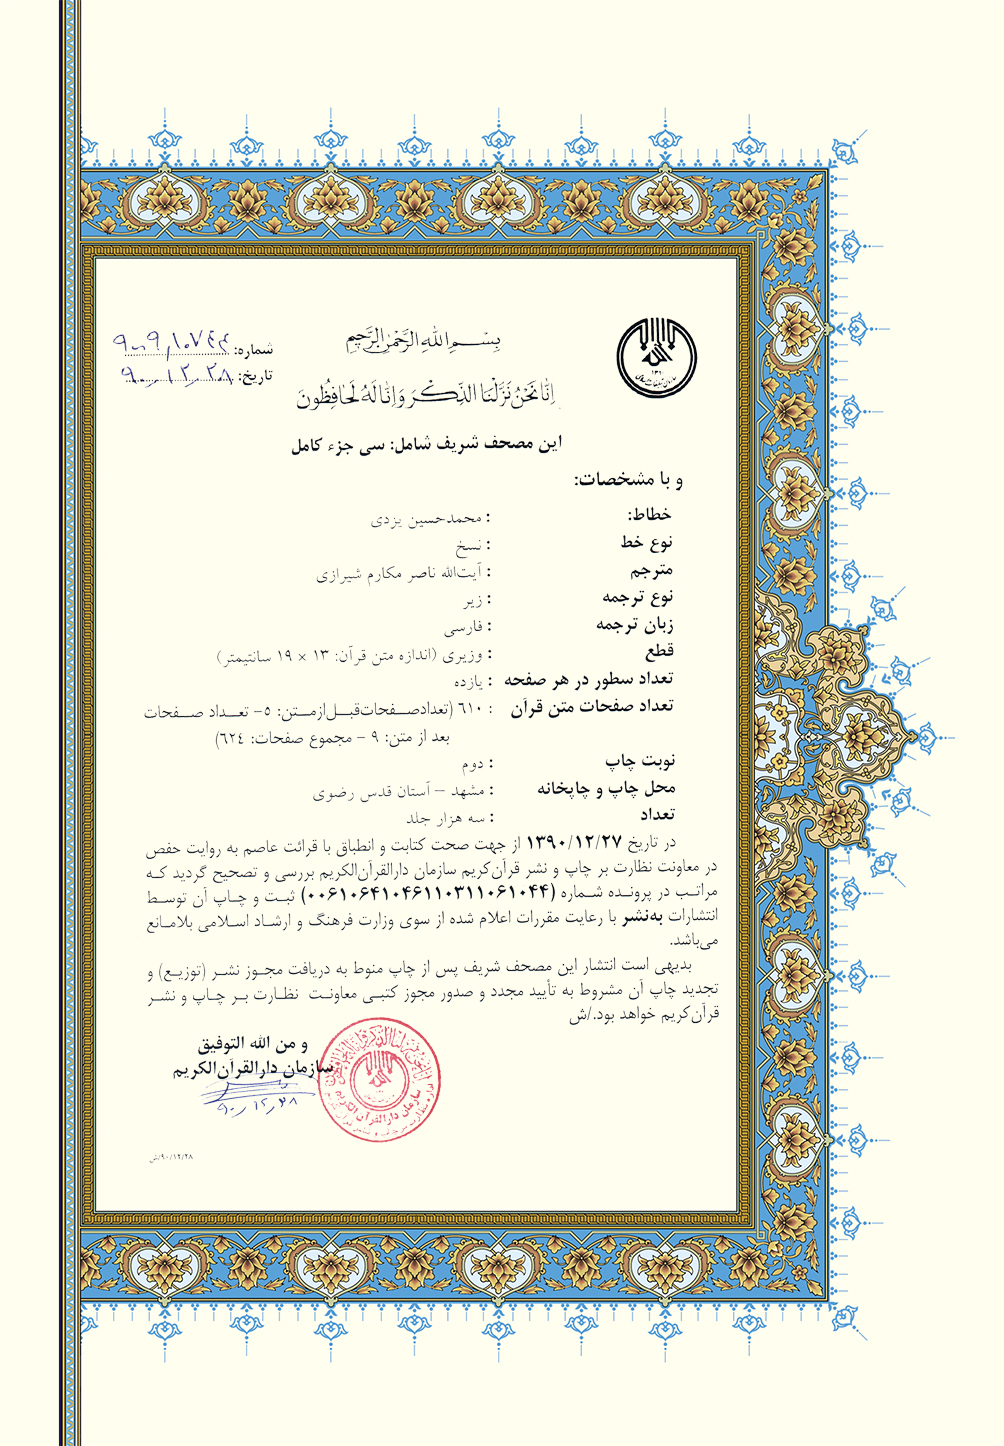 بِسْمِ اللهِ الرَّحْمٰنِ الرَّحِيمِ
شماره: ۹۰۹٫۱۰۷۴۴
تاریخ: ۹۰٫۱۲٫۲۸
۱۳۶۰
اِنّا نَحْنُ نَزَّلْنَا الذِّكْرَ وَاِنّا لَهُ لَحَافِظُونَ
این مصحف شریف شامل: سی جزء کامل
و با مشخصات:
خطاط: : محمدحسین یزدی
نوع خط : نسخ
مترجم : آیت‌الله ناصر مکارم شیرازی
نوع ترجمه : زیر
زبان ترجمه : فارسی
قطع : وزیری (اندازه متن قرآن: ۱۳ × ۱۹ سانتیمتر)
تعداد سطور در هر صفحه : یازده
تعداد صفحات متن قرآن : ۶۱۰ (تعداد صفحات قبل از متن: ۵- تعداد صفحات
بعد از متن: ۹ - مجموع صفحات: ۶۲۴)
نوبت چاپ : دوم
محل چاپ و چاپخانه : مشهد – آستان قدس رضوی
تعداد : سه هزار جلد
در تاریخ ۱۳۹۰/۱۲/۲۷ از جهت صحت کتابت و انطباق با قرائت عاصم به روایت حفص
در معاونت نظارت بر چاپ و نشر قرآن‌کریم سازمان دارالقرآن‌الکریم بررسی و تصحیح گردید که
مراتب در پرونده شماره (۰۰۶۱۰۶۴۱۰۴۶۱۱۰۳۱۱۰۶۱۰۴۴) ثبت و چاپ آن توسط
انتشارات به‌نشر با رعایت مقررات اعلام شده از سوی وزارت فرهنگ و ارشاد اسلامی بلامانع
می‌باشد.
بدیهی است انتشار این مصحف شریف پس از چاپ منوط به دریافت مجوز نشر (توزیع) و
تجدید چاپ آن مشروط به تأیید مجدد و صدور مجوز کتبی معاونت نظارت بر چاپ و نشر
قرآن‌کریم خواهد بود./ش
و من الله التوفیق
سازمان دارالقرآن‌الکریم
۹۰٫۱۲٫۲۸
سازمان دارالقرآن الکریم
۹۰/۱۲/۲۸/ش